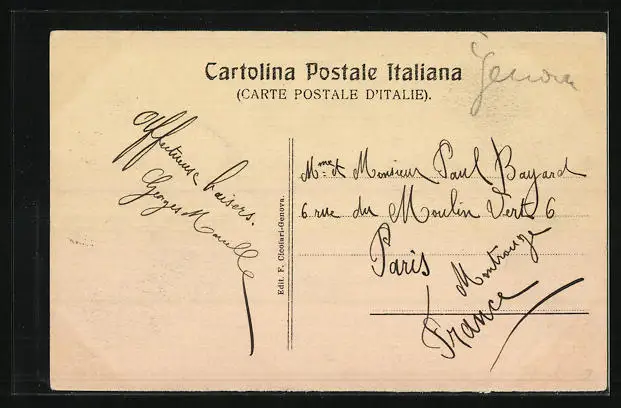 Cartolina Postale Italiana
(CARTE POSTALE D'ITALIE).
Genova
Affectueuse baisers.
Georges
Edit. F. Cicofari-Genova.
Mme et Monsieur Paul Bayard
6 rue du Moulin Vert 6
Paris
Montrouge
France